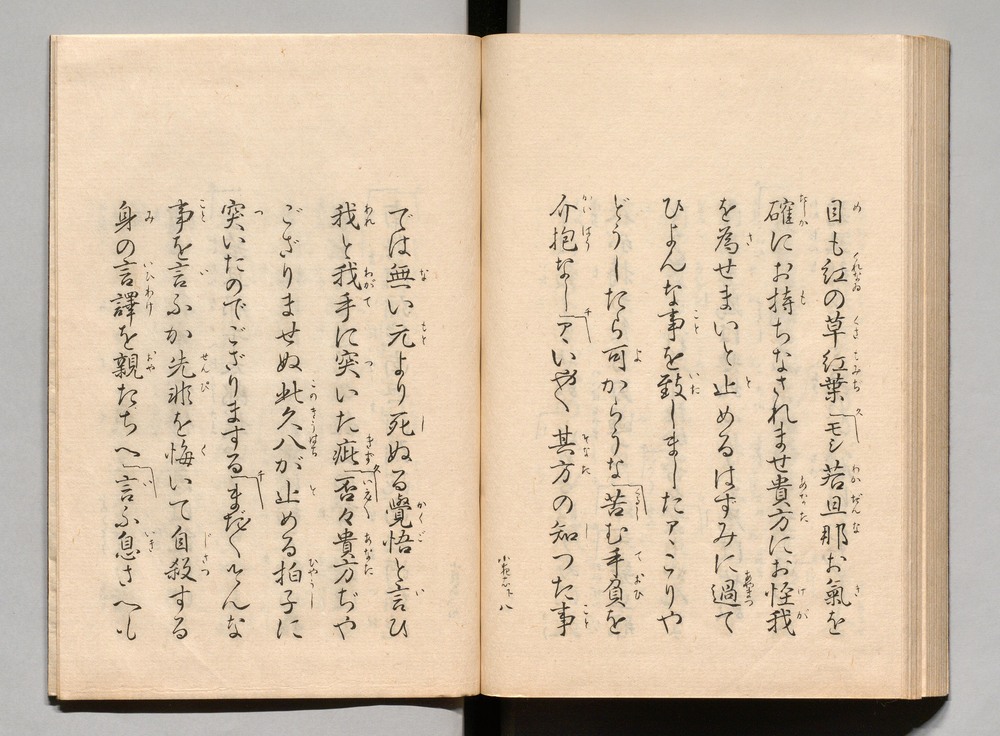 目も紅の草紅葉「モシ若旦那お氣を
確にお持ちなされませ貴方にお怪我
を為せまいと止めるはずみに過て
ひよんな事を致しましたアヽこりや
どうしたら可からうな「苦む手負を
介抱なし「アいや〱其方の知つた事
小猿七之下 八
では無い元より死ぬる覺悟と言ひ
我と我手に突いた疵「否々貴方ぢや
ござりませぬ此久八が止める拍子に
突いたのでござりまする「まだ〱そんな
事を言ふか先非を悔いて自殺する
身の言譯を親たちへ「言ふ息さへも